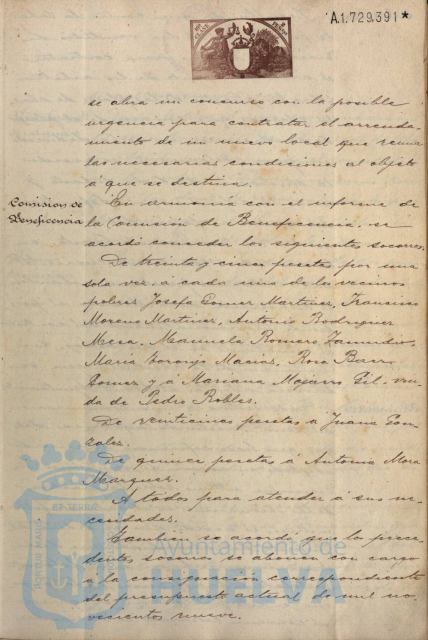 A.1.729.391*
se abra un concurso con la posible
urgencia para contratar el arrenda-
miento de un nuevo local que reuna
las necesarias condiciones al objeto
á que se destina.
Comision de
Beneficencia
En armonia con el informe de
la Comisión de Beneficencia, se
acordó conceder los siguientes socorros.
De treinta y cinco pesetas por una
sola vez, á cada uno de los vecinos
pobres Josefa Gomez Martinez, Francisco
Moreno Martinez, Antonio Rodriguez
Mesa, Manuela Romero Zamudio,
Maria Naranjo Macias, Rosa
Gomez y á Mariana Mojarro Gil - viu-
da de Pedro Robles.
De veinticinco pesetas á Juana Gon-
zalez.
De quince pesetas á Antonia Mora
Marquez.
A todos para atender á sus ne-
cesidades.
Tambien se acordó que los prece-
dentes socorros se abonen con cargo
á la consignacion correspondiente
del presupuesto actual de mil no-
vecientos nueve.
Ayuntamiento de
HUELVA